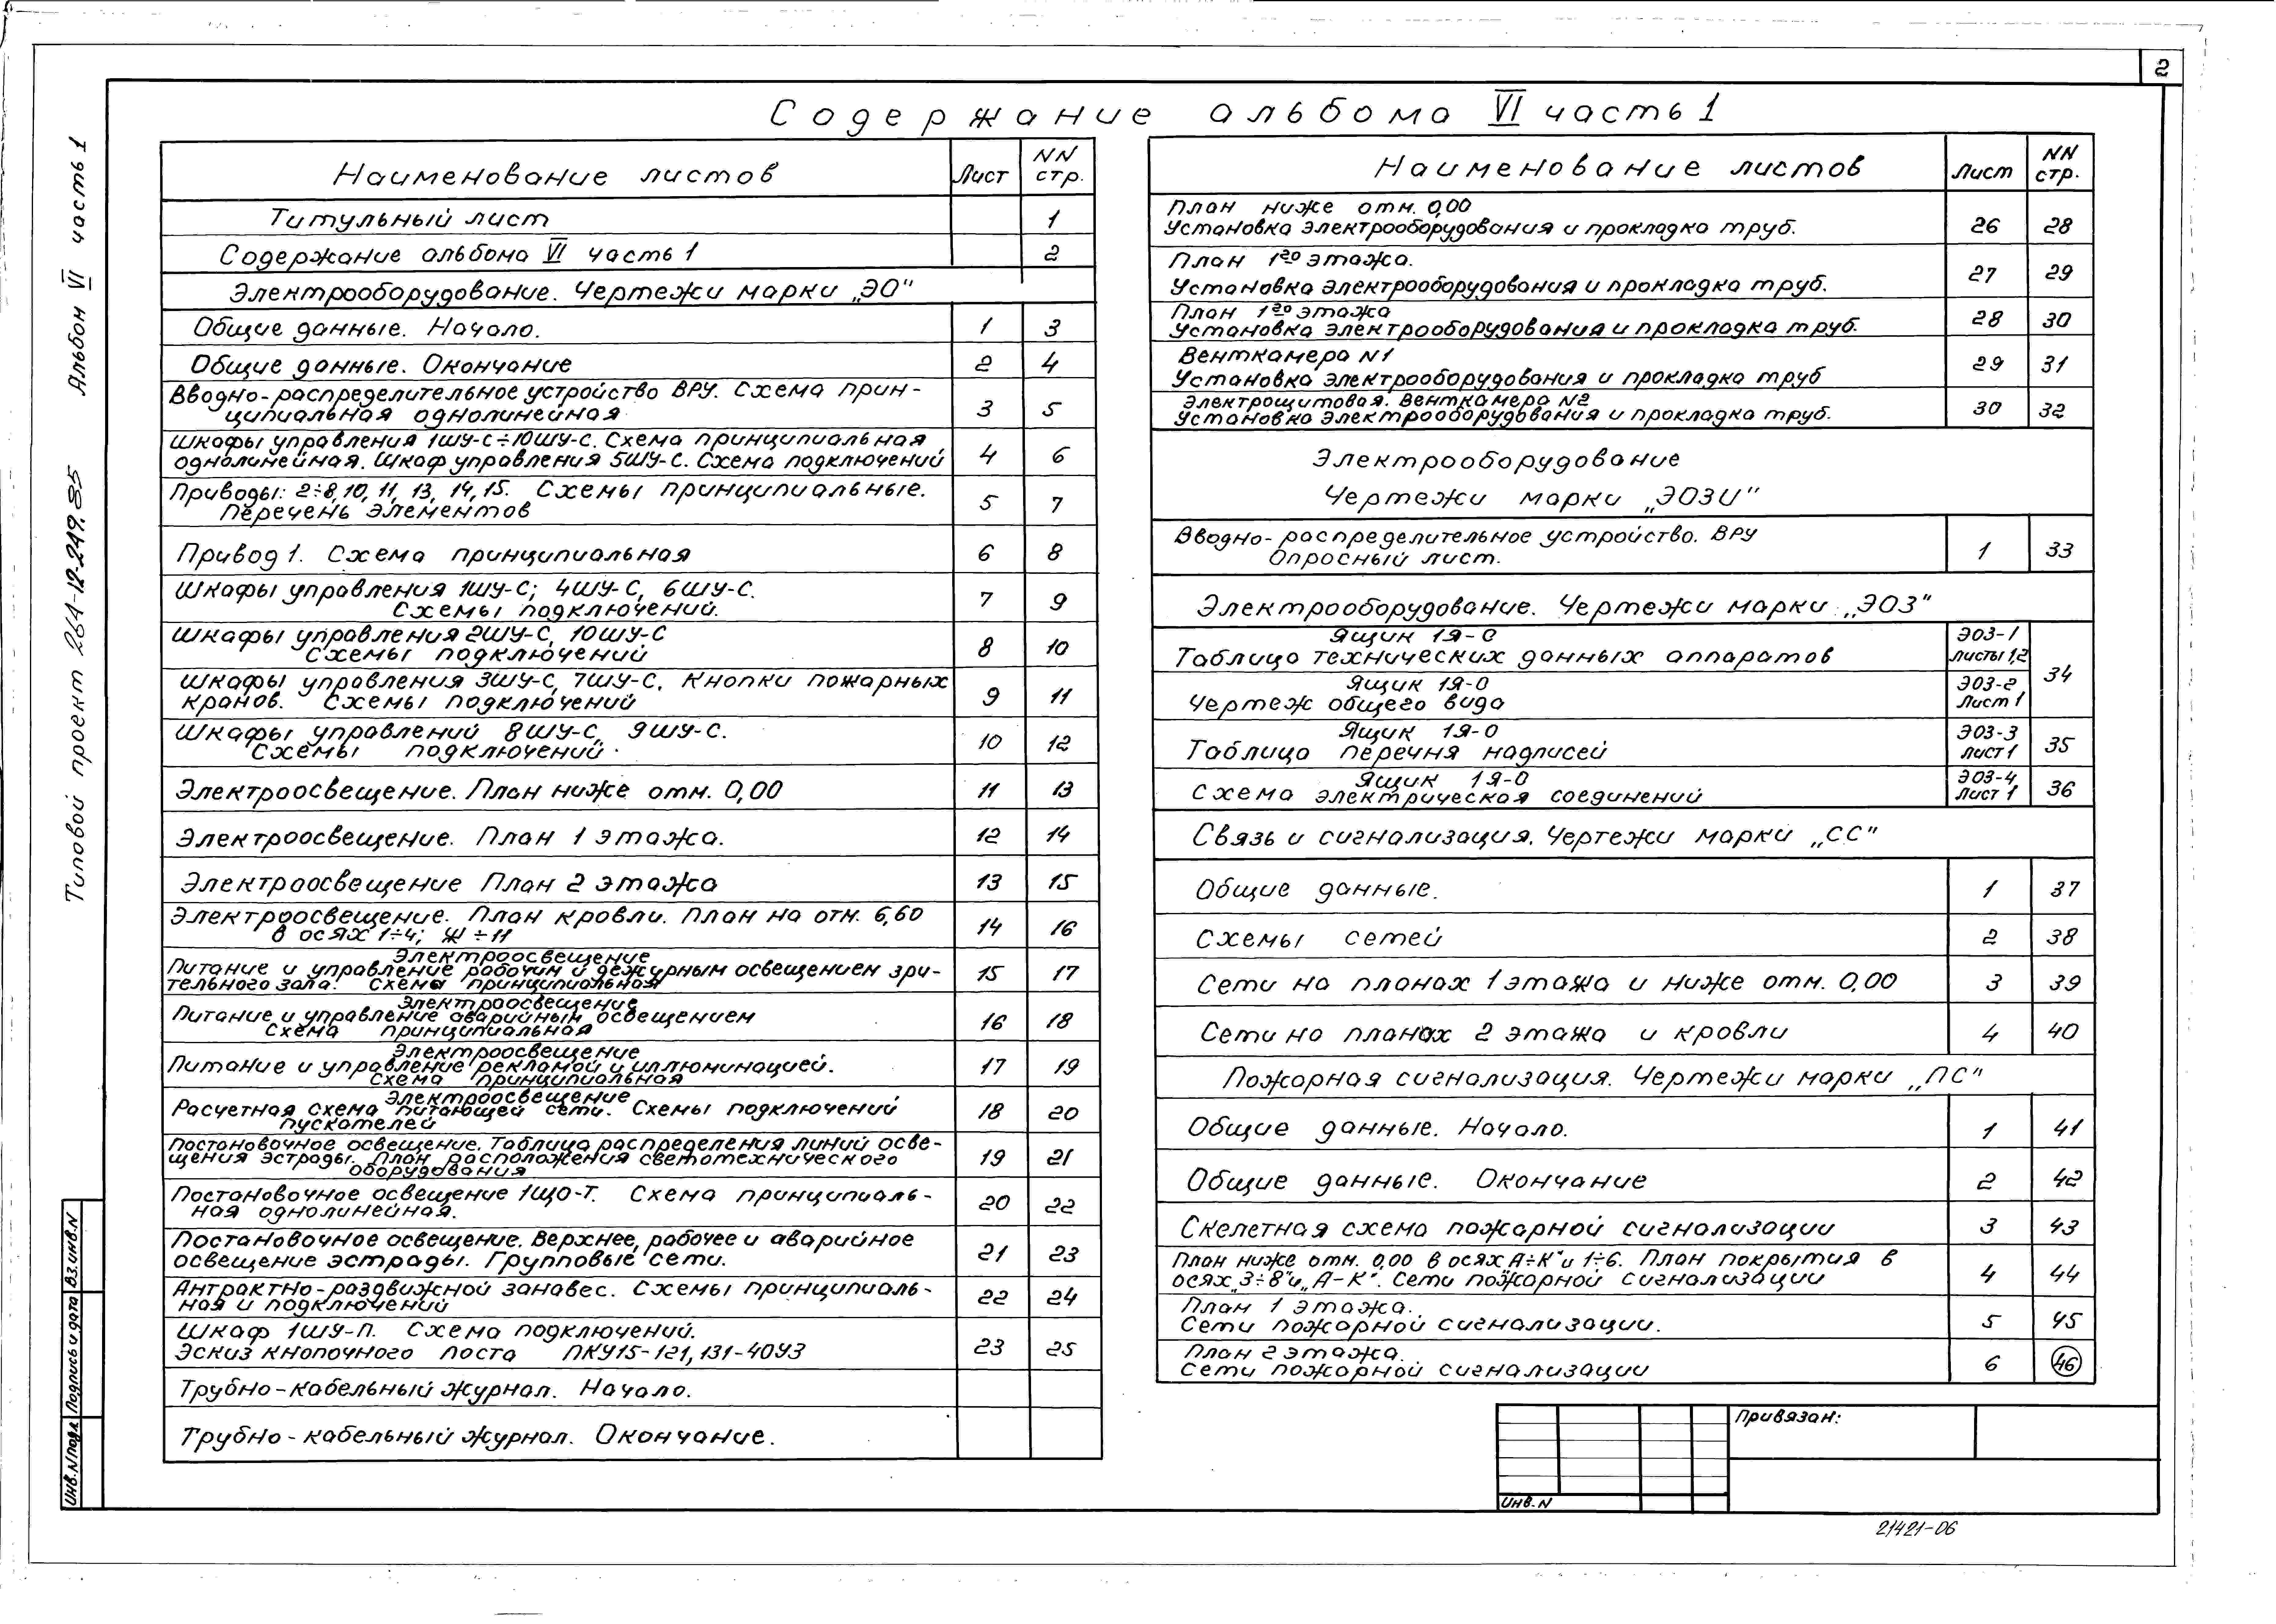 2
Содержание альбома VI часть 1
Типовой проект 264-12-249.85 Альбом VI часть 1
Наименование листов Лист NN стр.
Титульный лист 1
Содержание альбома VI часть 1 2
Электрооборудование. Чертежи марки „ЭО"
Общие данные. Начало. 1 3
Общие данные. Окончание 2 4
Вводно-распределительное устройство ВРУ. Схема прин-
ципиальная однолинейная 3 5
Шкафы управления 1ШУ-С÷10ШУ-С. Схема принципиальная
однолинейная. Шкаф управления 5ШУ-С. Схема подключений 4 6
Приводы: 2÷8, 10, 11, 13, 14, 15. Схемы принципиальные.
Перечень элементов 5 7
Привод 1. Схема принципиальная 6 8
Шкафы управления 1ШУ-С; 4ШУ-С, 6ШУ-С.
Схемы подключений. 7 9
Шкафы управления 2ШУ-С, 10ШУ-С
Схемы подключений 8 10
Шкафы управления 3ШУ-С, 7ШУ-С. Кнопки пожарных
кранов. Схемы подключений 9 11
Шкафы управлений 8ШУ-С, 9ШУ-С.
Схемы подключений. 10 12
Электроосвещение. План ниже отм. 0,00 11 13
Электроосвещение. План 1 этажа. 12 14
Электроосвещение План 2 этажа 13 15
Электроосвещение. План кровли. План на отм. 6,60
в осях 1÷4; Ж÷11 14 16
Электроосвещение
Питание и управление рабочим и дежурным освещением зри-
тельного зала. Схемы принципиальная 15 17
Электроосвещение
Питание и управление аварийным освещением
Схема принципиальная 16 18
Электроосвещение
Питание и управление рекламой и иллюминацией.
Схема принципиальная 17 19
Электроосвещение
Расчетная схема питающей сети. Схемы подключений
пускателей 18 20
Постановочное освещение. Таблица распределения линий осве-
щения эстрады. План расположения светотехнического
оборудования 19 21
Постановочное освещение 1ЩО-Т. Схема принципиаль-
ная однолинейная. 20 22
Постановочное освещение. Верхнее, рабочее и аварийное
освещение эстрады. Групповые сети. 21 23
Антрактно-раздвижной занавес. Схемы принципиаль-
ная и подключений 22 24
Шкаф 1ШУ-П. Схема подключений.
Эскиз кнопочного поста ПКУ15-121, 131-40У3 23 25
Трубно-кабельный журнал. Начало.
Трубно-кабельный журнал. Окончание.
Наименование листов Лист NN стр.
План ниже отм. 0,00
Установка электрооборудования и прокладка труб. 26 28
План 1го этажа.
Установка электрооборудования и прокладка труб. 27 29
План 1го этажа
Установка электрооборудования и прокладка труб. 28 30
Венткамера N1
Установка электрооборудования и прокладка труб 29 31
Электрощитовая. Венткамера N2
Установка электрооборудования и прокладка труб. 30 32
Электрооборудование
Чертежи марки „ЭОЗИ"
Вводно-распределительное устройство. ВРУ
Опросный лист. 1 33
Электрооборудование. Чертежи марки „ЭОЗ"
Ящик 1Я-0
Таблица технических данных аппаратов ЭОЗ-1 листы 1,2 34
Ящик 1Я-0
Чертеж общего вида ЭОЗ-2 Лист 1
Ящик 1Я-0
Таблица перечня надписей ЭОЗ-3 лист 1 35
Ящик 1Я-0
Схема электрическая соединений ЭОЗ-4 Лист 1 36
Связь и сигнализация. Чертежи марки „СС"
Общие данные. 1 37
Схемы сетей 2 38
Сети на планах 1 этажа и ниже отм. 0,00 3 39
Сети на планах 2 этажа и кровли 4 40
Пожарная сигнализация. Чертежи марки „ПС"
Общие данные. Начало. 1 41
Общие данные. Окончание 2 42
Скелетная схема пожарной сигнализации 3 43
План ниже отм. 0,00 в осях А÷К" и 1÷6. План покрытия в
осях „3÷8" и „А-К". Сети пожарной сигнализации 4 44
План 1 этажа.
Сети пожарной сигнализации. 5 45
План 2 этажа.
Сети пожарной сигнализации 6 46
Привязан:
Инв. N
Инв. N подл. Подпись и дата Вз. инв. N
21421-06